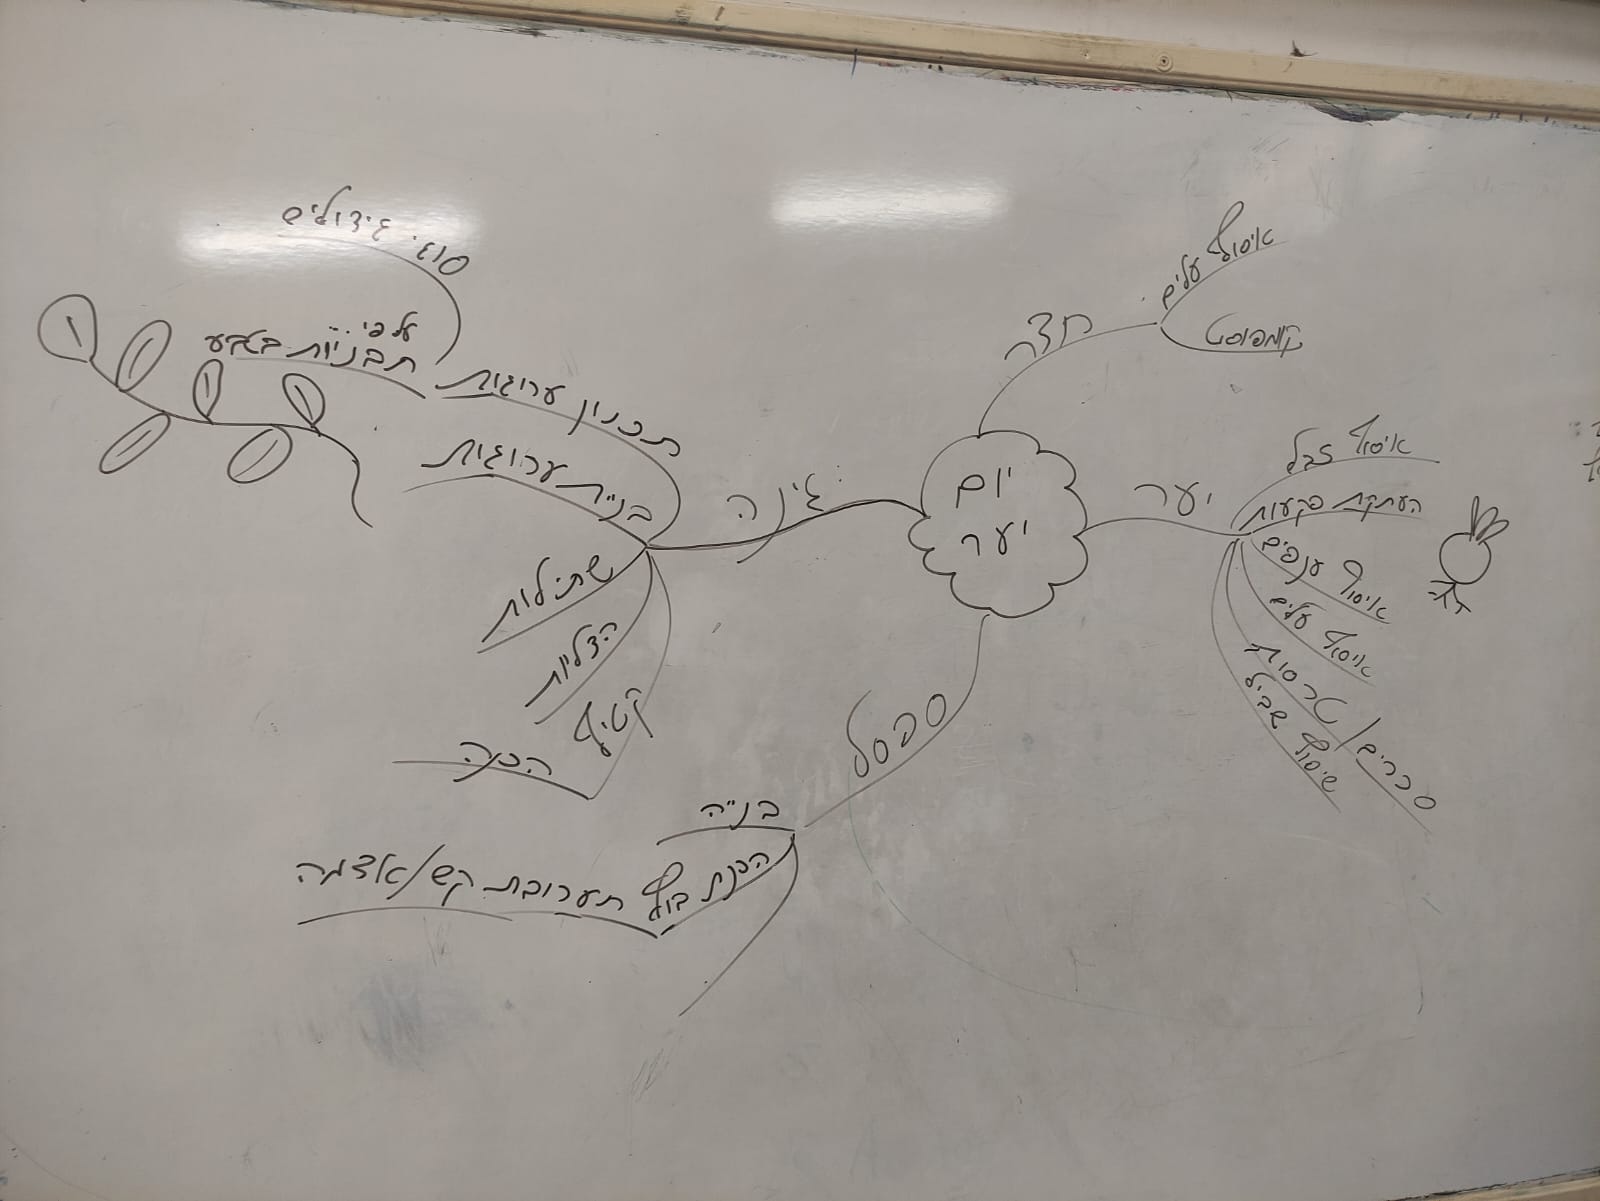 יום
יער
חצר
איסוף עלים
קומפוסט
יער
איסוף זבל
העתקת פקעות
איסוף ענפים
איסוף עלים
סכרים/טרסות
שיפוץ שביל
ספסל
בנייה
הכנת בוץ תערובת קש/אדמה
גינה
תכנון ערוגות
סוגי גידולים
על פי...
תבניות בטבע
בניית ערוגות
שתילות
הדליות
קטיף
הכנה